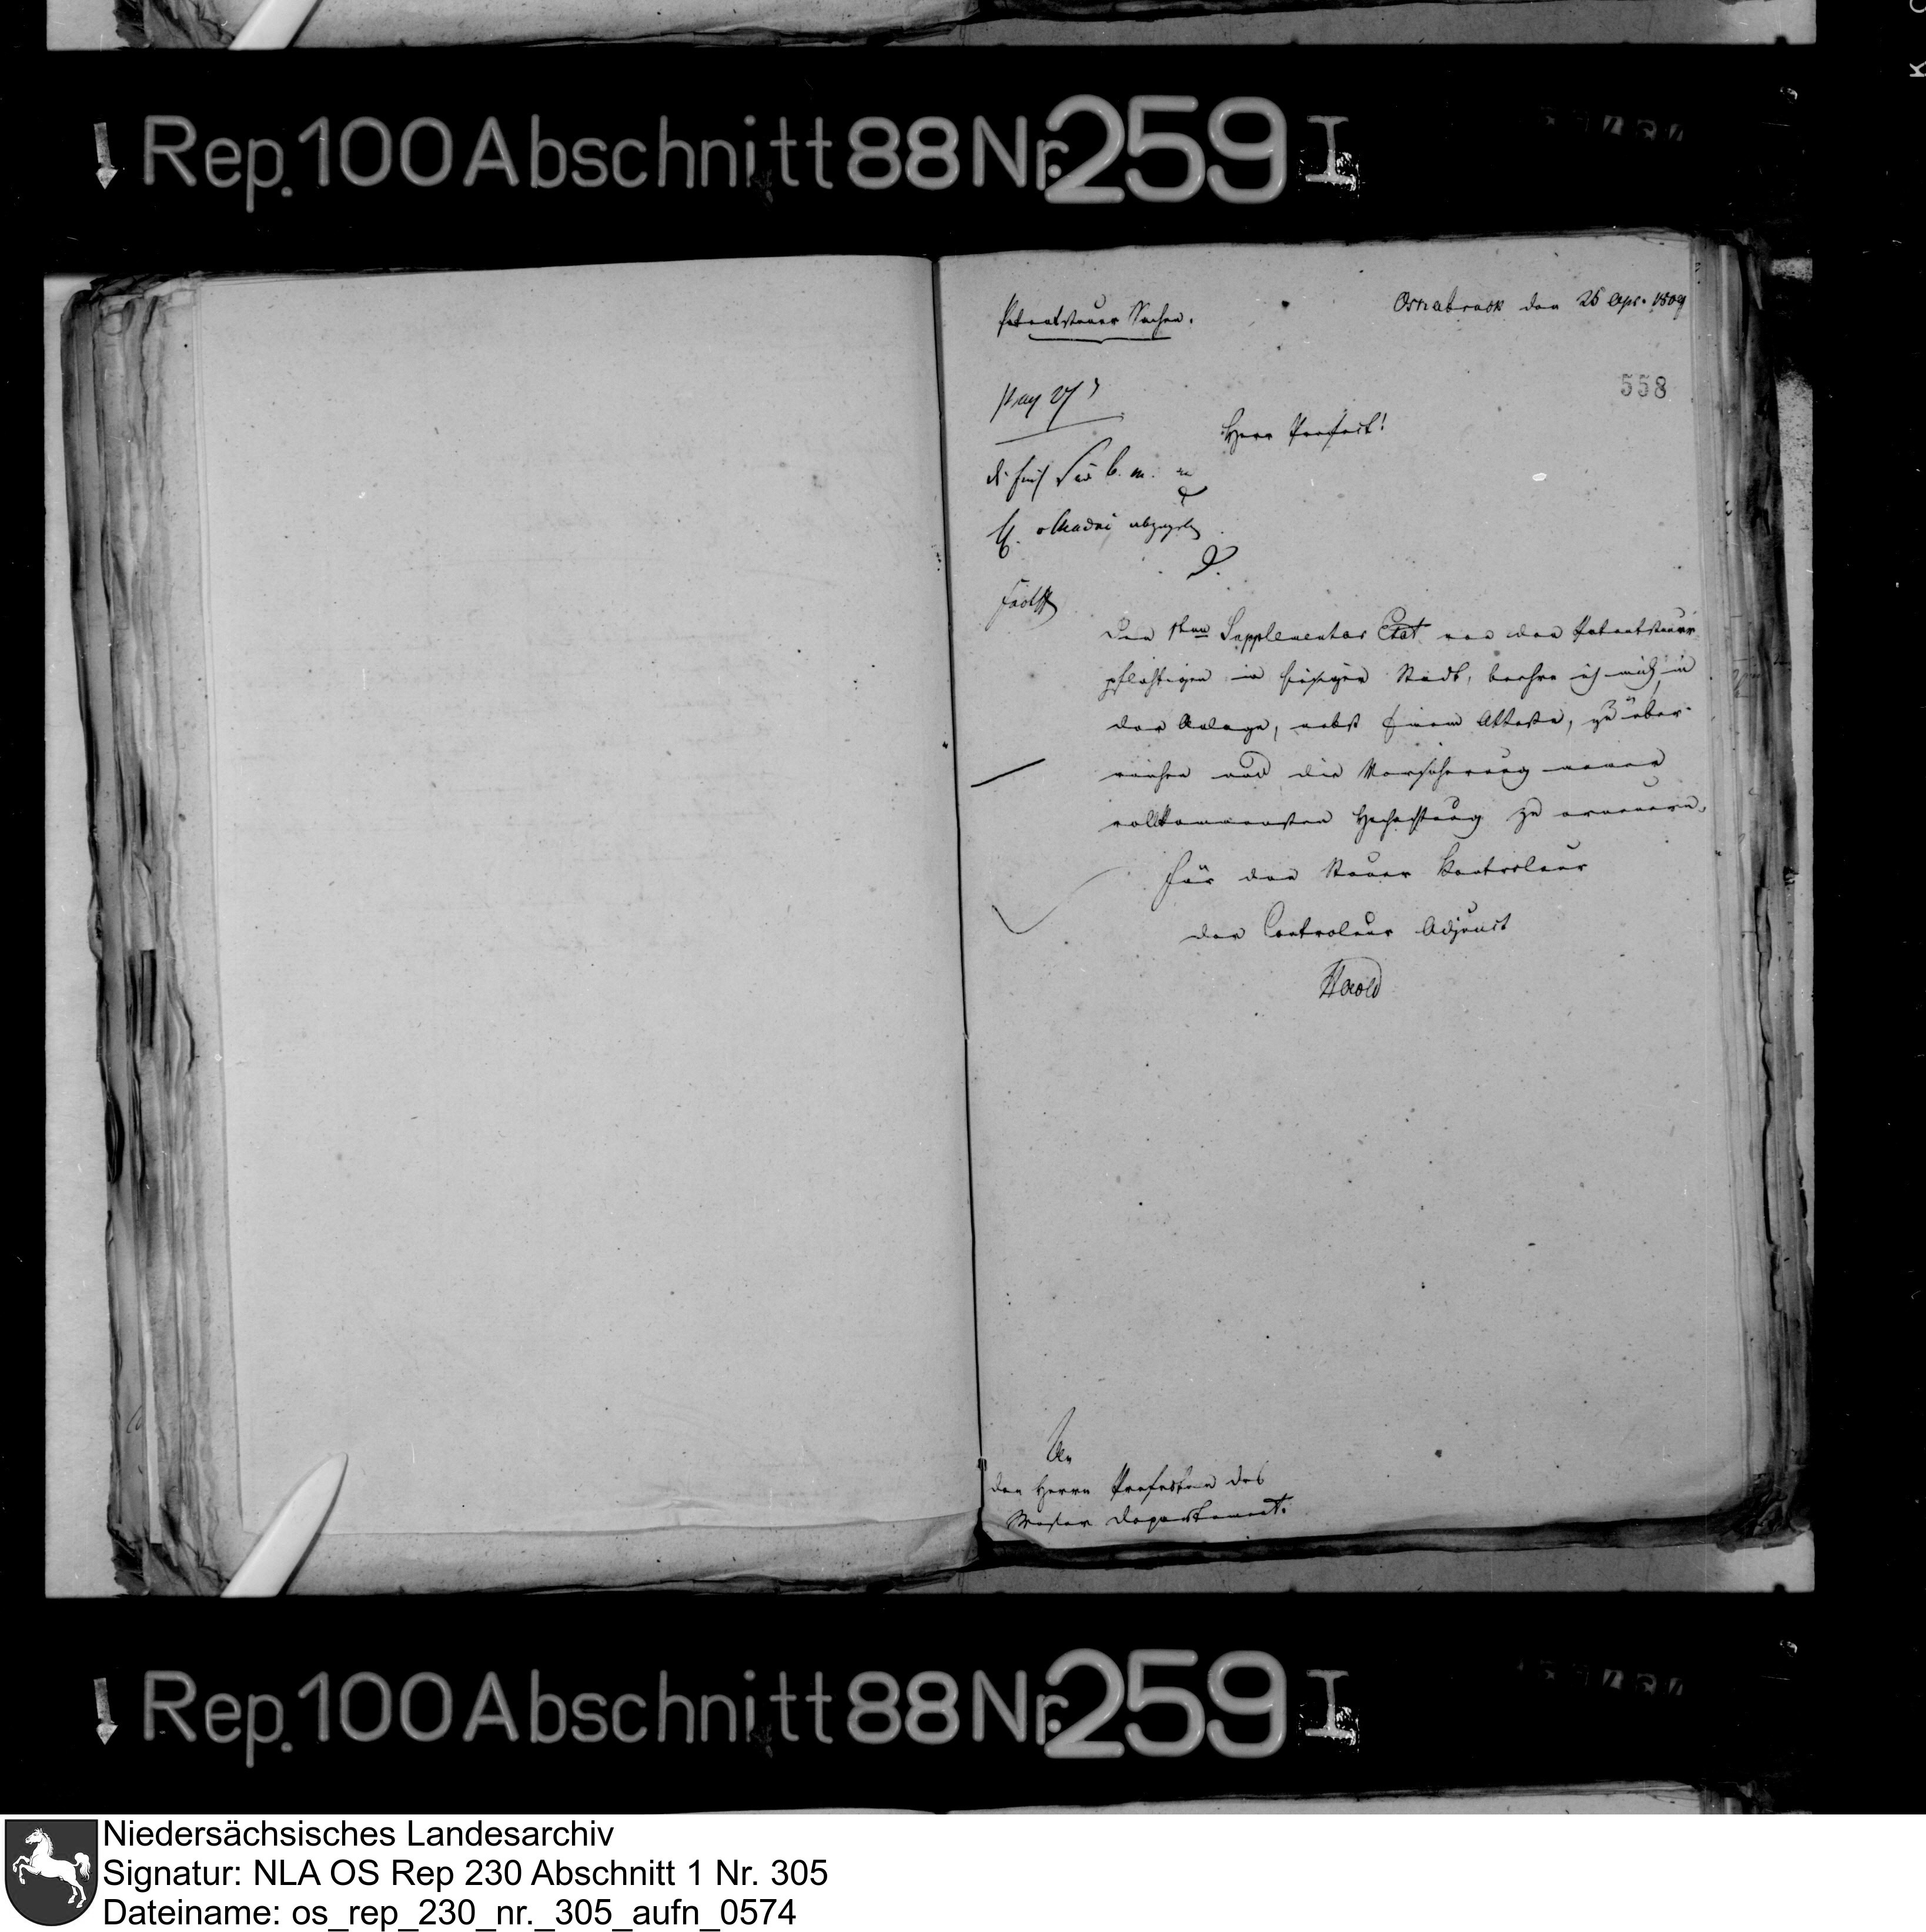 Rep. 100 Abschnitt 88 Nr. 259 I
Patentsteuer Sachen.
Osnabrück den 25 Apr. 1809
558
Herr Praefect!
abzugeben
Den 1ten Supplementar Etat von den Patentsteuer
pflichtigen in hiesiger Stadt, beehre ich mich in
der Anlage, nebst einem Atteste, zu über-
reichen und die Versicherung meiner
vollkommensten Hochachtung zu erneuern.
Für den Steuer Kontroleur
der Controleur Adjunct
Herold
An
den Herrn Präfekten des
Weser Departement.
Rep. 100 Abschnitt 88 Nr. 259 I
Niedersächsisches Landesarchiv
Signatur: NLA OS Rep 230 Abschnitt 1 Nr. 305
Dateiname: os_rep_230_nr._305_aufn_0574